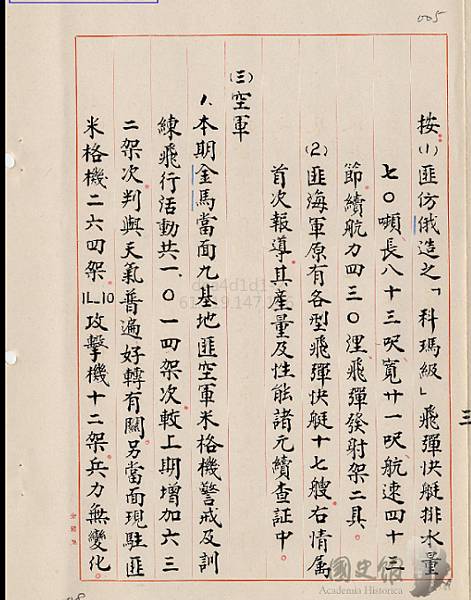 005
按(1)匪仿俄造之「科瑪級」飛彈快艇排水量
七〇噸長八十三呎寬廿一呎航速四十三
節續航力四三〇浬飛彈發射架二具。
(2)匪海軍原有各型飛彈快艇十七艘。右情属
首次報導其產量及性能諸元續查証中。
(三)空軍
1.本期金馬當面九基地匪空軍米格機警戒及訓
練飛行活動共一、〇一四架次較上期增加六三
二架次判與天氣普遍好轉有關。另當面現駐匪
米格機二六四架。IL-10攻擊機十二架。兵力無變化。
三
國史館
Academia Historica